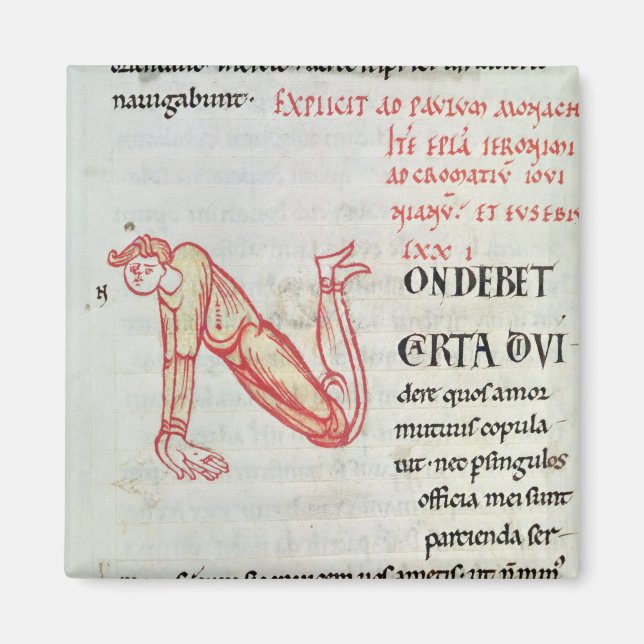 nauigabunt· EXPLICIT AD PAVLVM MONACH
ITĒ EPLĀ IERONIMI
AD CROMATIV̄ IOVI
NIANV̄· ET EVSEBIV
LXX I
N ONDEBET
CARTA DIVI
dere quos amor
mutuus copula
uit· nec ꝑsingulos
officia mei sunt
parcienda ser